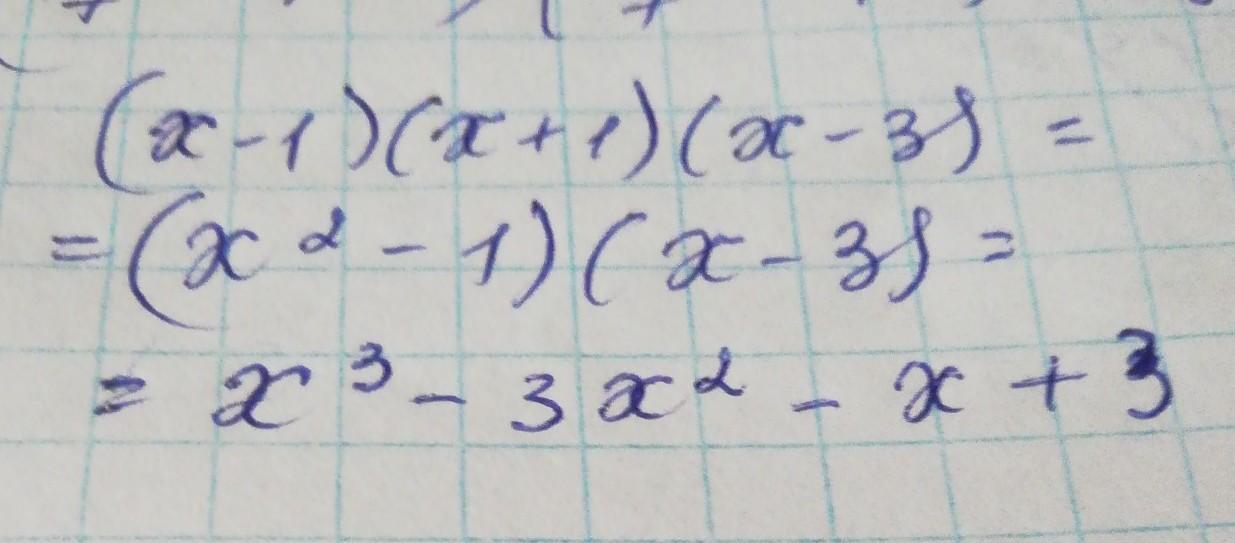 (x-1)(x+1)(x-3)=
=(x²-1)(x-3)=
=x³-3x²-x+3